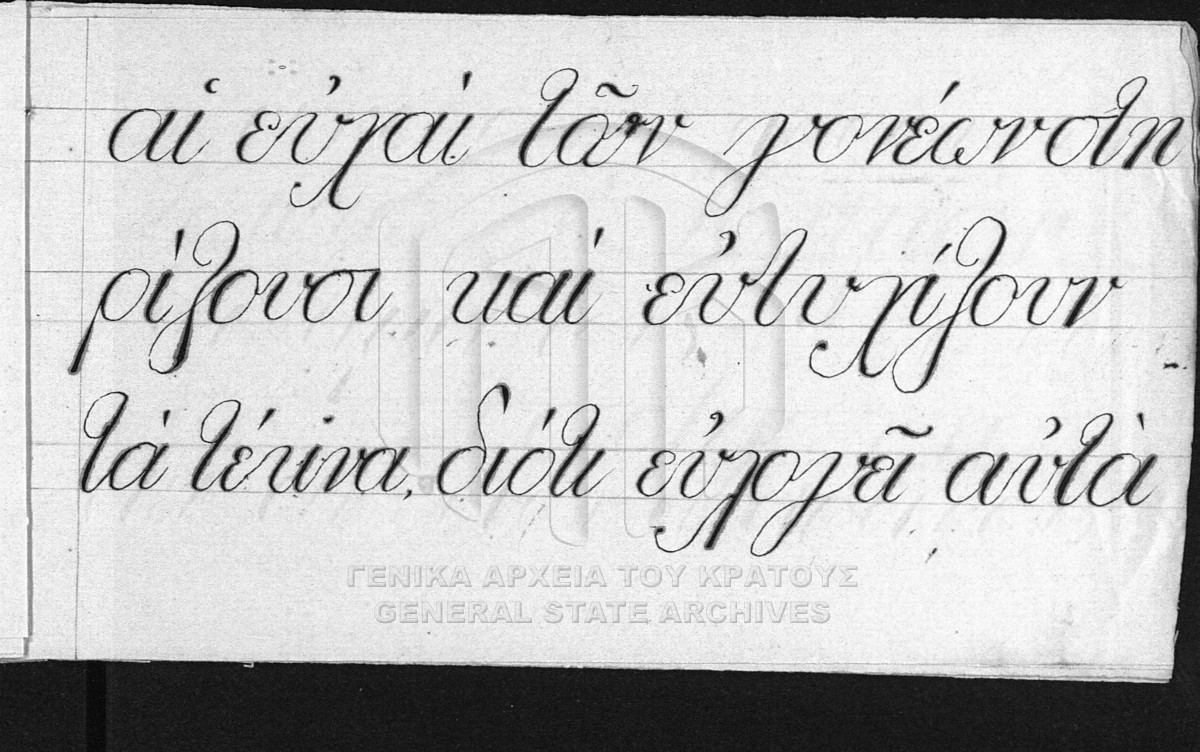 αἱ εὐχαὶ τῶν γονέων στη
ρίζουσι καί εὐτυχίζουν
τὰ τέκνα, διότι εὐλογεῖ αὐτὰ
ΓΕΝΙΚΑ ΑΡΧΕΙΑ ΤΟΥ ΚΡΑΤΟΥΣ
GENERAL STATE ARCHIVES